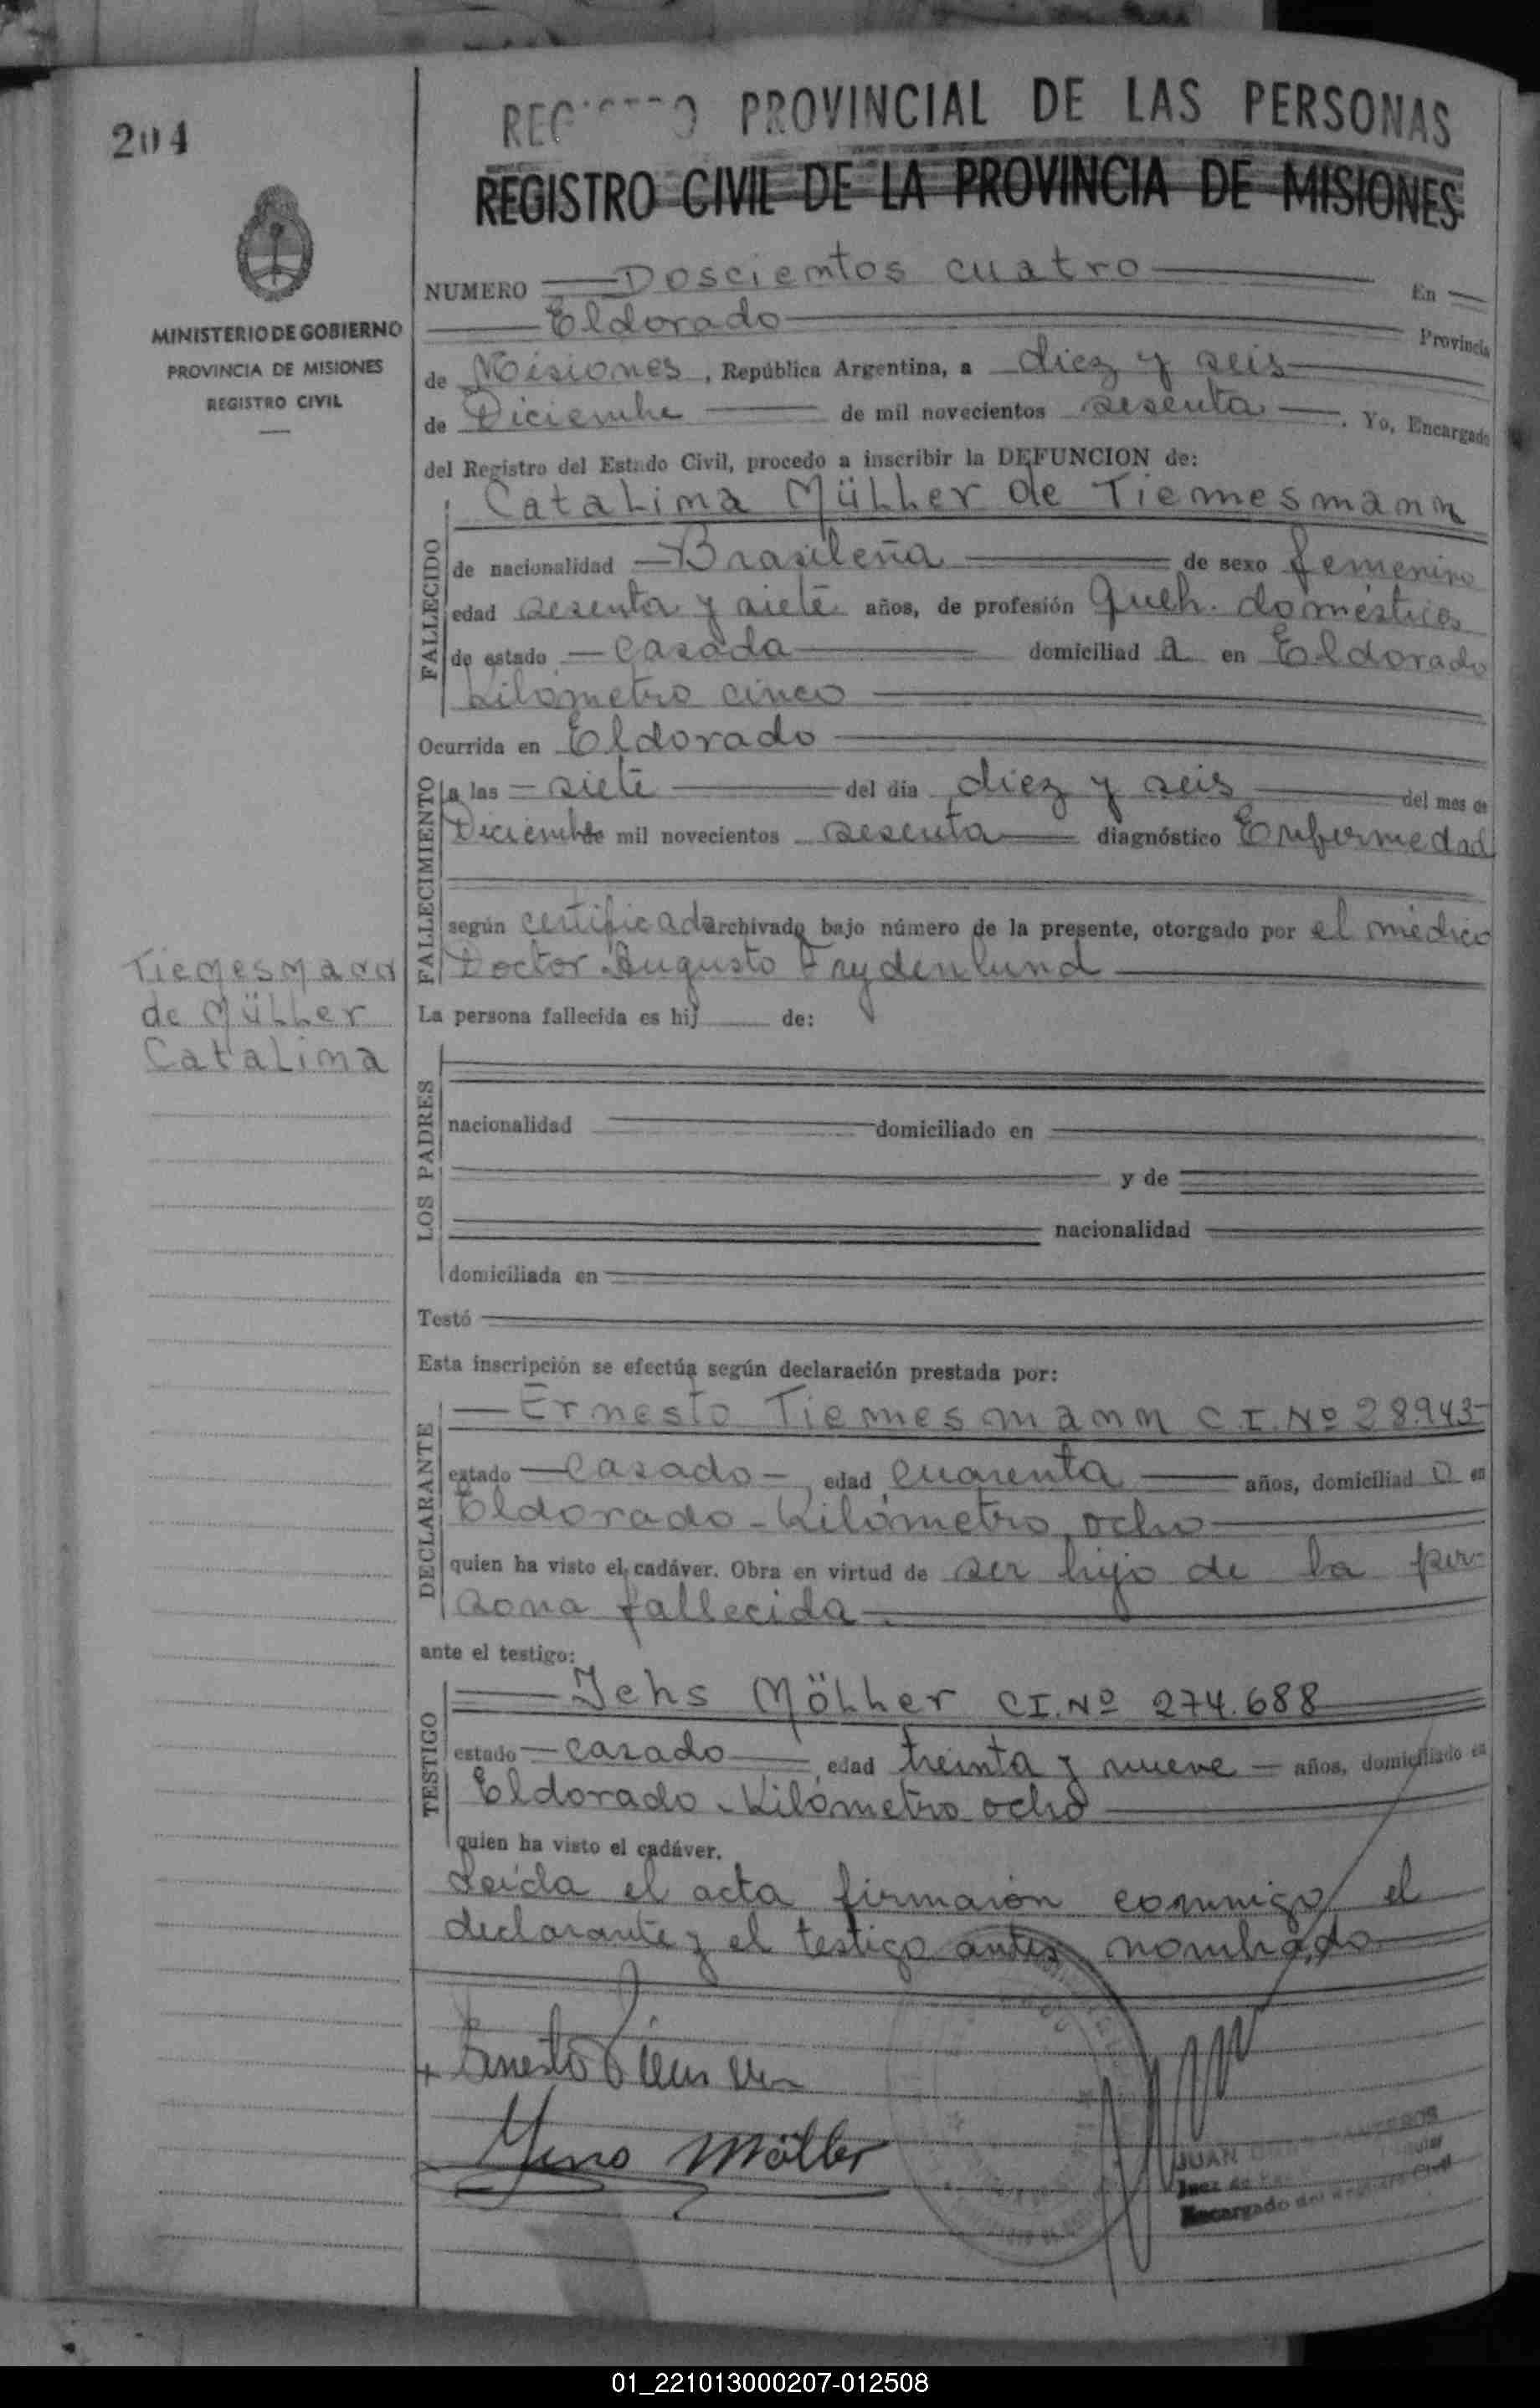 204
PROVINCIAL DE LAS PERSONAS
REGISTRO CIVIL DE LA PROVINCIA DE MISIONES
MINISTERIO DE GOBIERNO
PROVINCIA DE MISIONES
REGISTRO CIVIL
NUMERO Doscientos cuatro En
Eldorado Provincia
de Misiones, República Argentina, a diez y seis
de Diciembre de mil novecientos sesenta. Yo, Encargado
del Registro del Estado Civil, procedo a inscribir la DEFUNCION de:
Catalina Müller de Tiemesmann
FALLECIDO
de nacionalidad Brasileña de sexo femenino
edad sesenta y siete años, de profesión Queh. domésticos
de estado casada domiciliad a en Eldorado
kilómetro cinco
Ocurrida en Eldorado
FALLECIMIENTO
a las siete del día diez y seis del mes de
Diciembre mil novecientos sesenta diagnóstico Enfermedad
según certificado archivado bajo número de la presente, otorgado por el médico
Doctor Augusto Frydenlund
Tiemesmann
de Müller
Catalina
La persona fallecida es hij de:
LOS PADRES
nacionalidad domiciliado en
y de
nacionalidad
domiciliada en
Testó
Esta inscripción se efectúa según declaración prestada por:
DECLARANTE
Ernesto Tiemesmann C.I. Nº 28.943
estado casado edad cuarenta años, domiciliad o en
Eldorado - kilómetro ocho
quien ha visto el cadáver. Obra en virtud de ser hijo de la per-
sona fallecida
ante el testigo:
TESTIGO
Jehs Möller C.I. Nº 274.688
estado casado edad treinta y nueve años, domiciliado en
Eldorado - kilómetro ocho
quien ha visto el cadáver.
Leída el acta firmaron conmigo el
declarante y el testigo antes nombrado
Ernesto
Möller
JUAN
Juez de
Encargado del Registro Civil
01_221013000207-012508